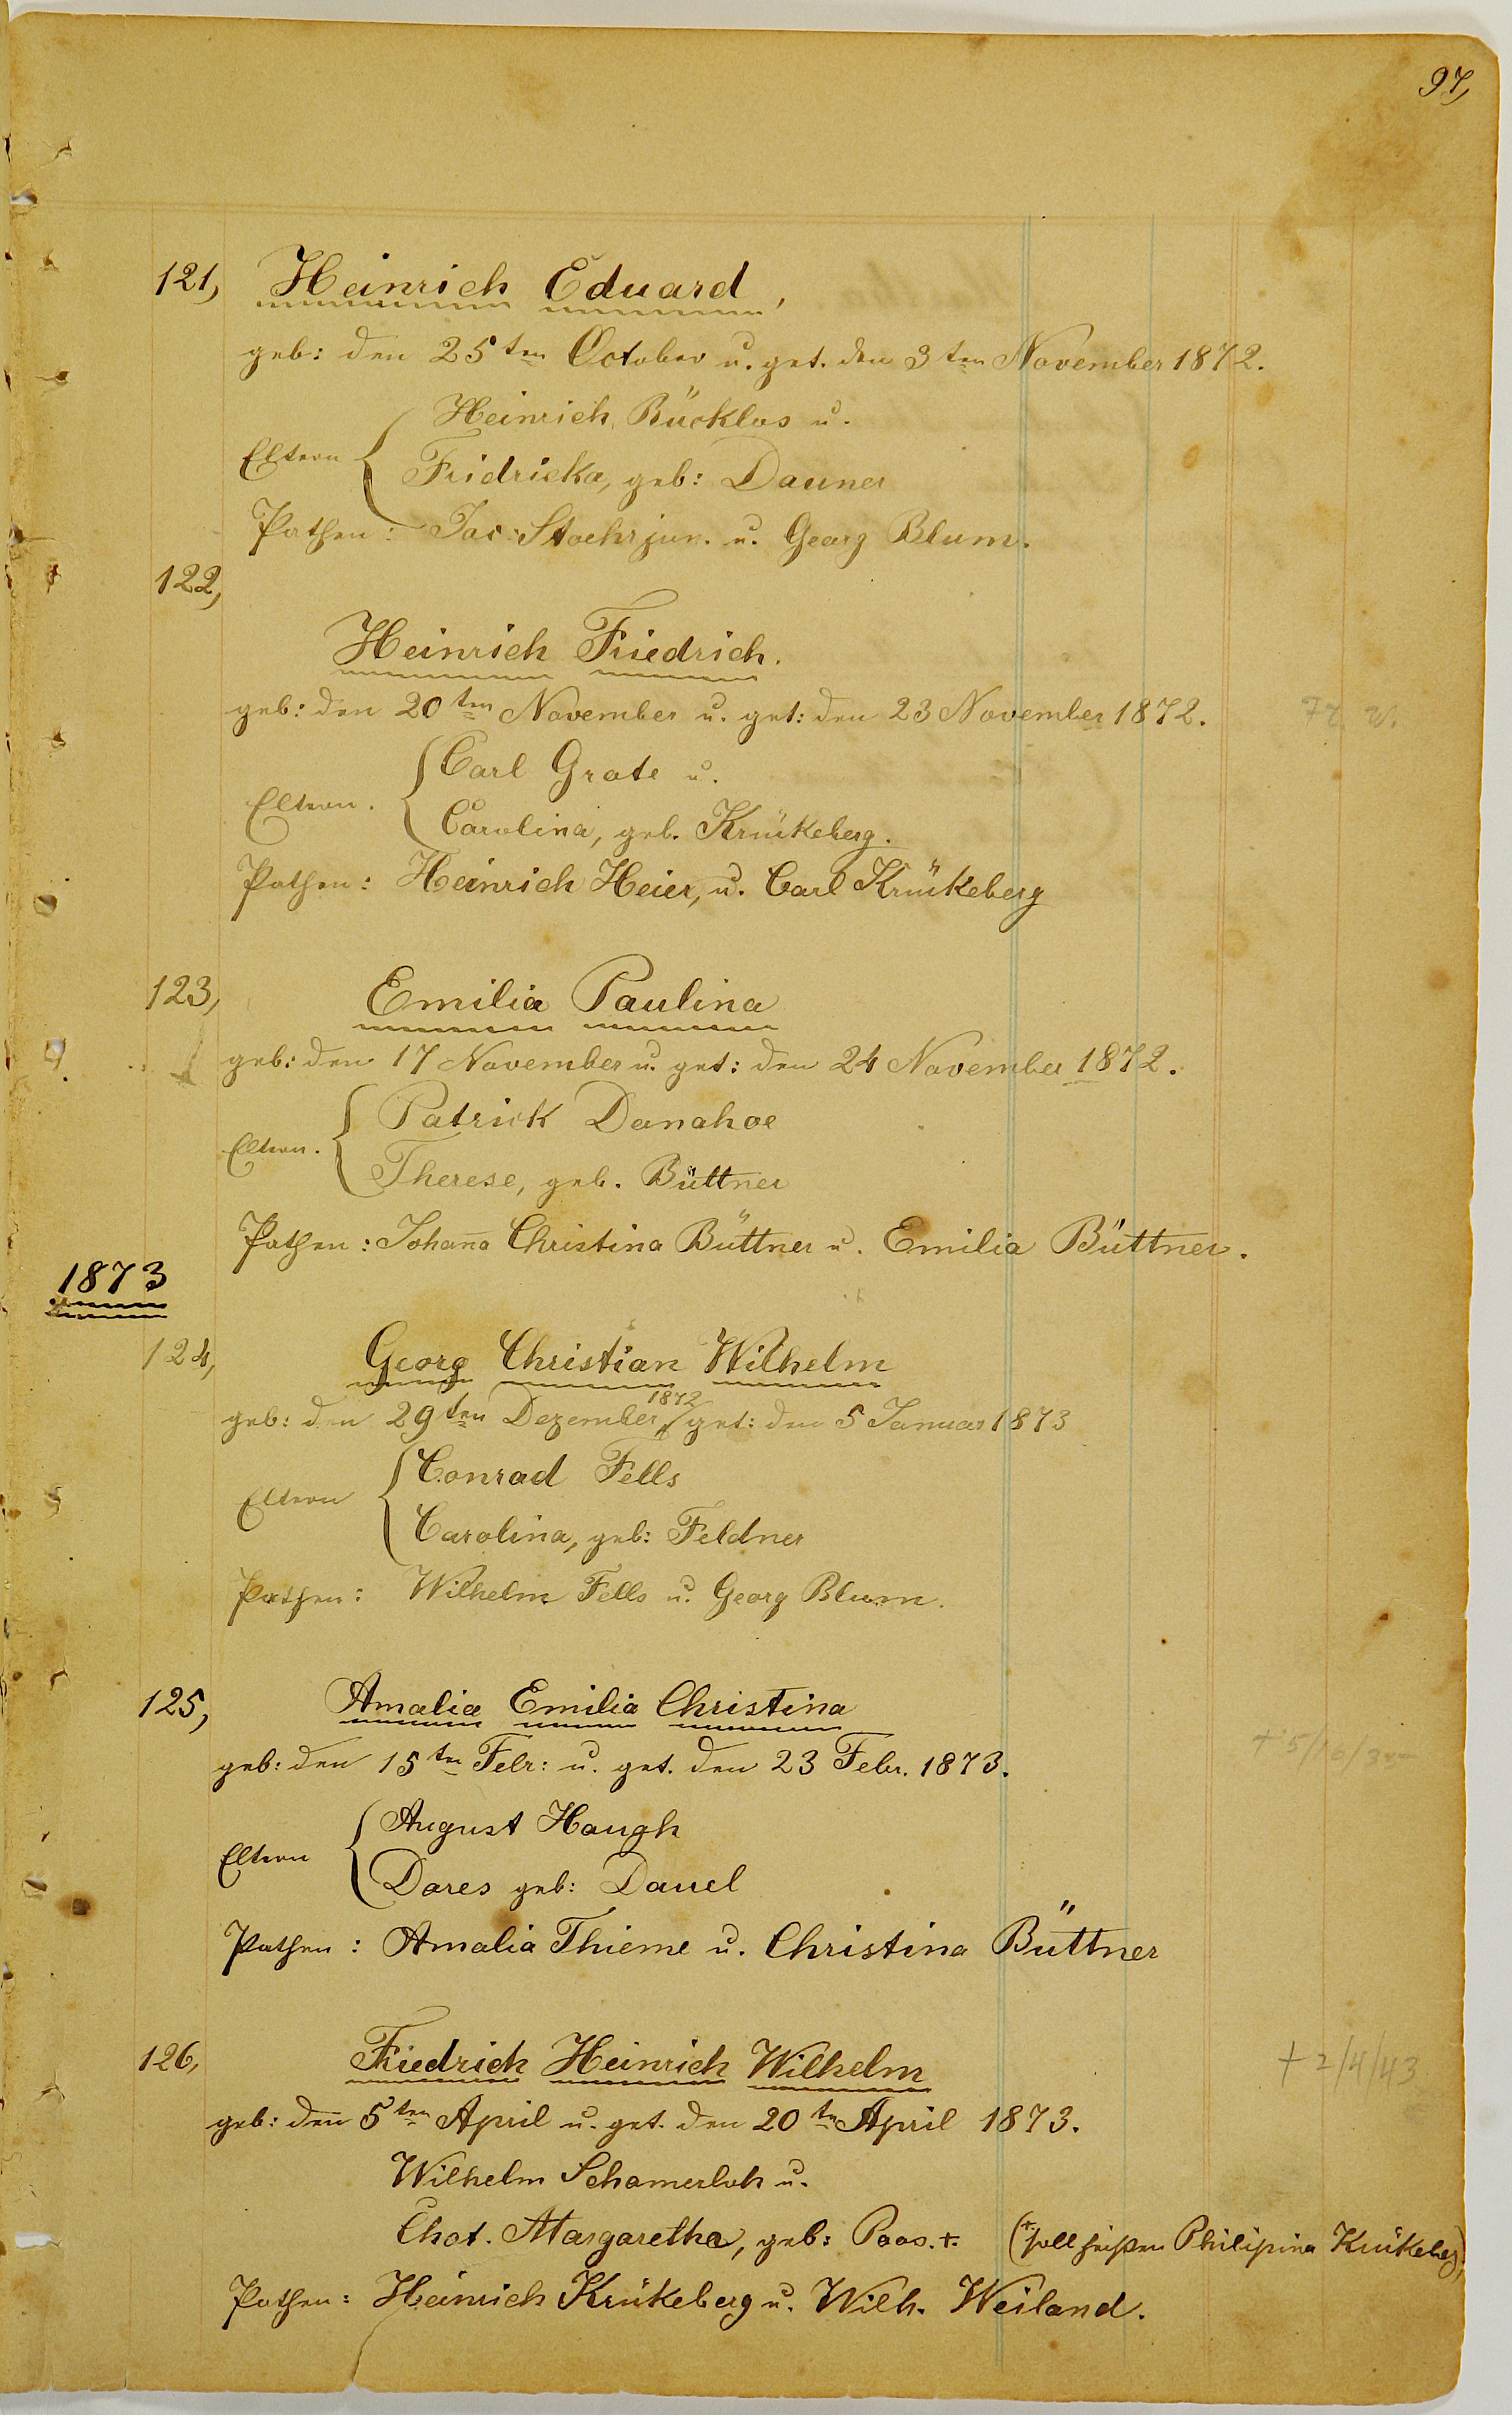 97,
121, Heinrich Eduard,
geb: den 25ten October u. get. den 3ten November 1872.
Heinrich Bücklos u.
Eltern
Fridricka, geb: Dauner
Pathen: Jac. Stoehr jun. u. Georg Blum.
122,
Heinrich Friedrich.
geb: den 20ten November u. get: den 23 November 1872.
Carl Grote u.
Eltern.
Carolina, geb. Krückeberg.
Pathen: Heinrich Heier, u. Carl Krückeberg
123, Emilia Paulina
geb: den 17 November u. get: den 24 November 1872.
Patrick Donahoe
Eltern.
Therese, geb. Büttner
Pathen: Johana Christina Büttner u. Emilia Büttner.
1873
124, Georg Christian Wilhelm
geb: den 29ten Dezember 1872 get: den 5 Januar 1873
Conrad Fells
Eltern
Carolina, geb: Feldner
Pathen: Wilhelm Fells u. Georg Blum.
125, Amalia Emilia Christina
geb: den 15ten Febr: u. get. den 23 Febr. 1873.
August Haugh
Eltern
Dores geb: Dauel
Pathen: Amalia Thieme u. Christina Büttner
126, Friedrich Heinrich Wilhelm + 2/4/43
geb: den 5ten April u. get. den 20tn April 1873.
Wilhelm Schamerloh u.
Chat. Margaretha, geb: Poos. +. (+ soll heißen Philipina Krükeberg)
Pathen: Heinrich Krükeberg u. Wilh. Weiland.